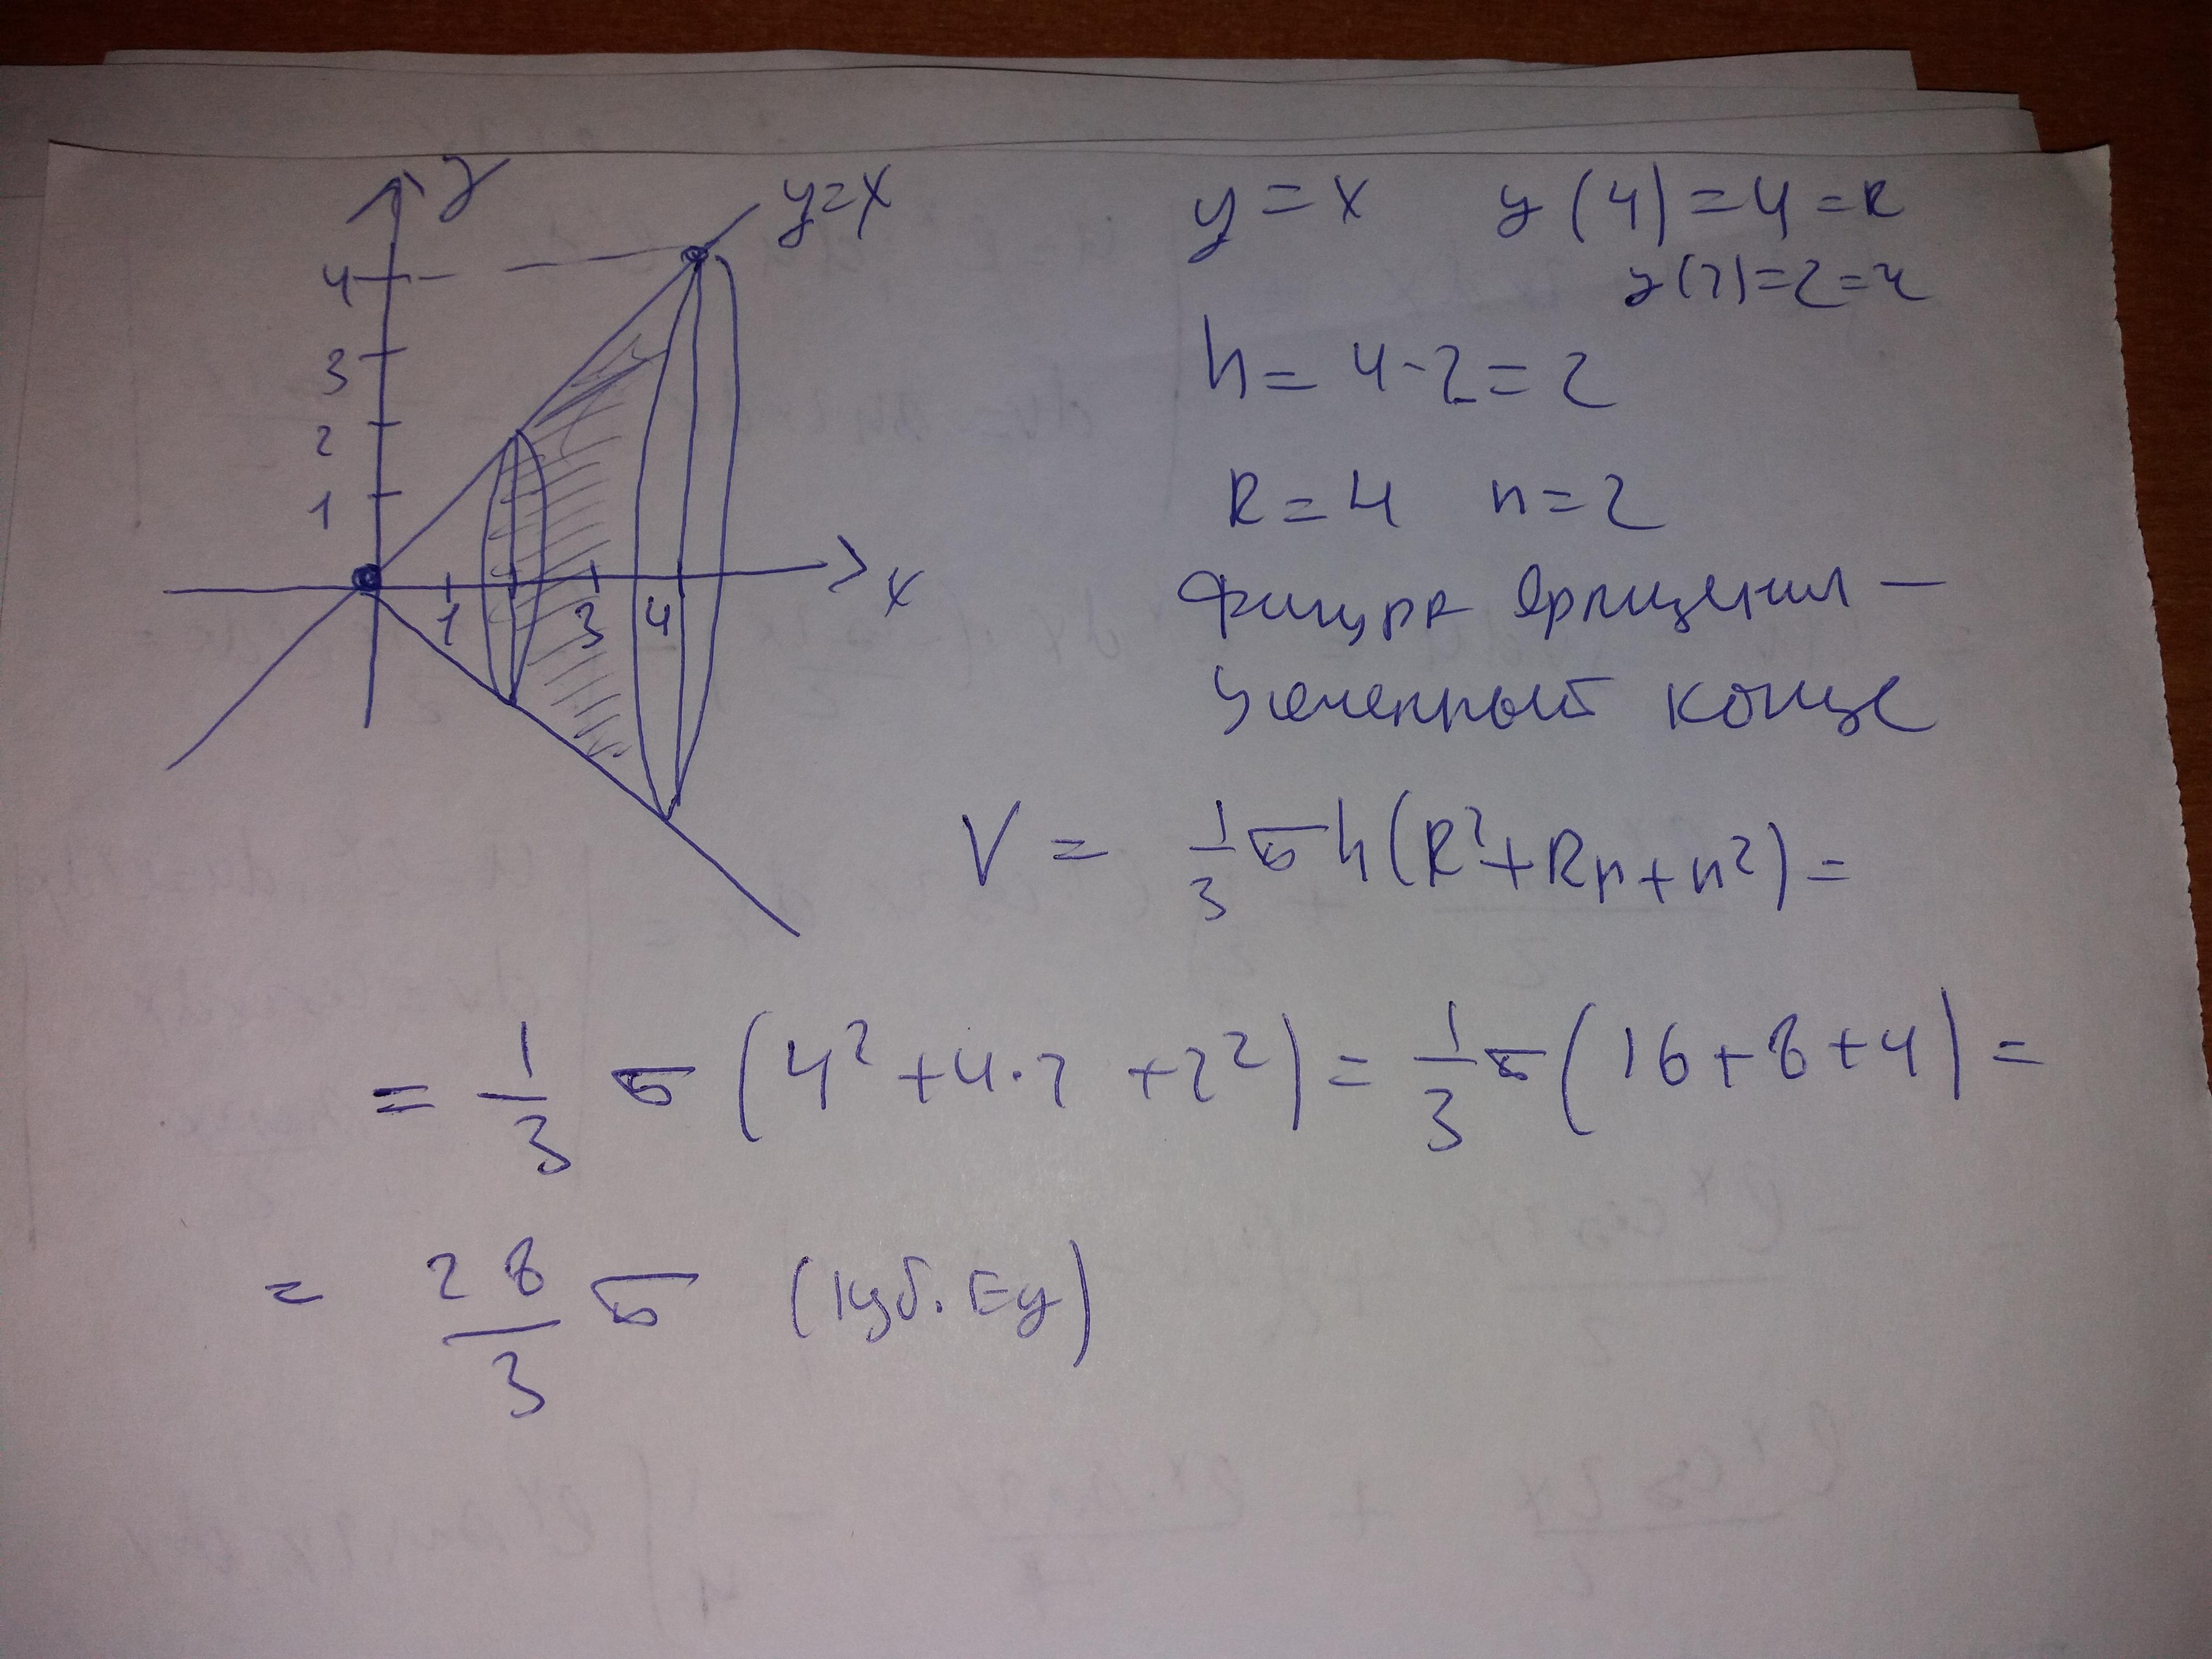 y
y=x
4
3
2
1
1 3 4
x
y = x y(4) = 4 = R
y(2) = 2 = r
h = 4 - 2 = 2
R = 4 r = 2
Фигура вращения –
усеченный конус
V = 1/3 π h (R² + Rr + r²) =
= 1/3 π (4² + 4·2 + 2²) = 1/3 π (16 + 8 + 4) =
= 28/3 π (куб. Ед)